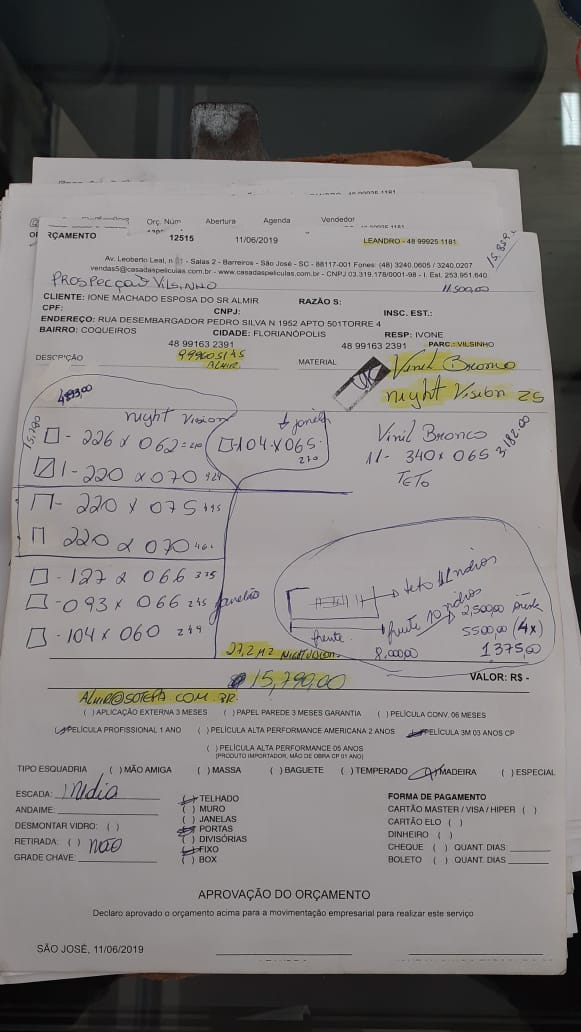 Orç. Núm Abertura Agenda Vendedor
ORÇAMENTO 12515 11/06/2019 LEANDRO - 48 99925 1181
15.859,
Av. Leoberto Leal, n - Salas 2 - Barreiros - São José - SC - 88117-001 Fones: (48) 3240.0605 / 3240.0207
vendas5@casadaspeliculas.com.br - www.casadaspeliculas.com.br - CNPJ 03.319.178/0001-98 - I. Est. 253.951.640
PROSPECÇÃO VILSINHO 11.500,00
CLIENTE: IONE MACHADO ESPOSA DO SR ALMIR RAZÃO S:
CPF: CNPJ: INSC. EST.:
ENDEREÇO: RUA DESEMBARGADOR PEDRO SILVA N 1952 APTO 501TORRE 4
BAIRRO: COQUEIROS CIDADE: FLORIANÓPOLIS RESP: IVONE
48 99163 2391 48 99163 2391 PARC.: VILSINHO
DESCRIÇÃO 999605145 MATERIAL Vinil Branco
ALMIR night Vision 25
15,790
night Vision janela
- 226 x 062 = 210 - 104 x 065 270
Vinil Branco
1 - 220 x 070 424
11 - 340 x 065 3.182,00
TETO
- 220 x 075 495
220 x 070 461
- 127 x 066 375
- 093 x 066 245 Janelão
- 104 x 060 249
teto 11 vidros
frente 10 vidros
2,500,00
frente 5500,00 (4x)
8.000,00 1375,00
27,2 M2 NIGHT VISION
15,790,00 VALOR: R$ -
ALMIR@SOTEPA.COM.BR
( ) APLICAÇÃO EXTERNA 3 MESES ( ) PAPEL PAREDE 3 MESES GARANTIA ( ) PELÍCULA CONV. 06 MESES
PELÍCULA PROFISSIONAL 1 ANO ( ) PELÍCULA ALTA PERFORMANCE AMERICANA 2 ANOS PELÍCULA 3M 03 ANOS CP
( ) PELÍCULA ALTA PERFORMANCE 05 ANOS
(PRODUTO IMPORTADOR, MÃO DE OBRA CP 01 ANO)
TIPO ESQUADRIA ( ) MÃO AMIGA ( ) MASSA ( ) BAGUETE ( ) TEMPERADO MADEIRA ( ) ESPECIAL
ESCADA: Media
ANDAIME:
DESMONTAR VIDRO: ( )
RETIRADA: ( ) não
GRADE CHAVE:
TELHADO
( ) MURO
( ) JANELAS
PORTAS
( ) DIVISÓRIAS
FIXO
( ) BOX
FORMA DE PAGAMENTO
CARTÃO MASTER / VISA / HIPER ( )
CARTÃO ELO ( )
DINHEIRO ( )
CHEQUE ( ) QUANT. DIAS:
BOLETO ( ) QUANT. DIAS
APROVAÇÃO DO ORÇAMENTO
Declaro aprovado o orçamento acima para a movimentação empresarial para realizar este serviço
SÃO JOSÉ, 11/06/2019